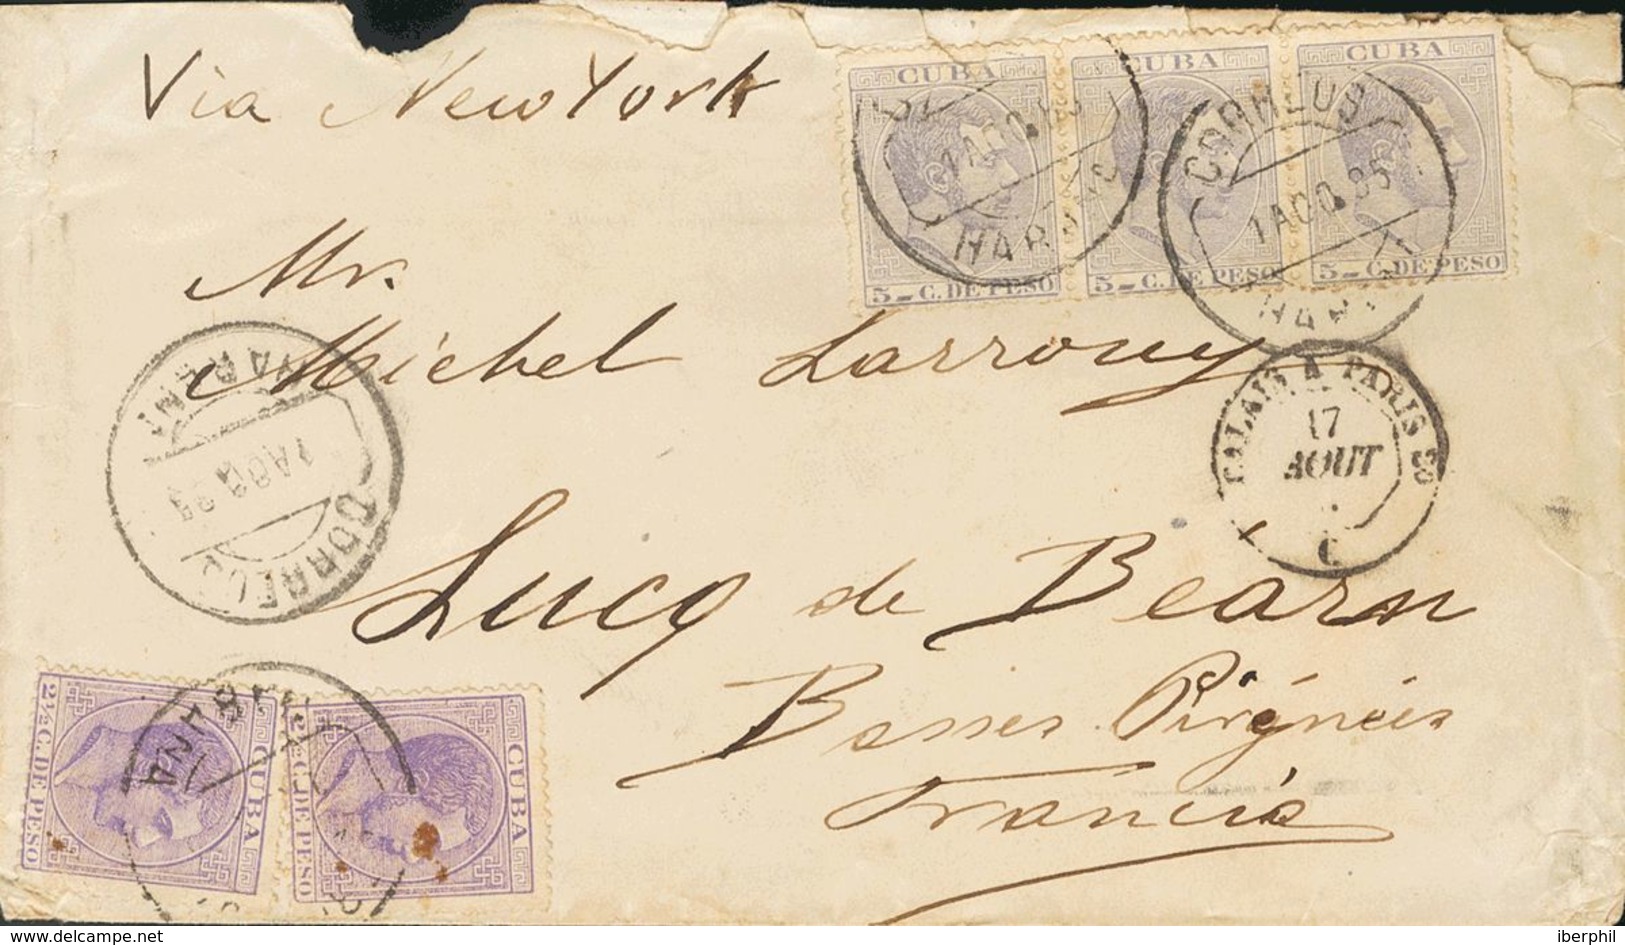 Via New York
CUBA
5 C. DE PESO
CUBA
5 C. DE PESO
CUBA
5 C. DE PESO
CORREOS
1 AGO. 85
Mr.
Michel Larrouy
CALAIS A PARIS
17
AOUT
CORREOS
1 AGO. 85
Lucq de Bearn
Basses Pirénéés
Francia
2½ C. DE PESO
CUBA
2½ C. DE PESO
CUBA
delcampe.net
iberphil